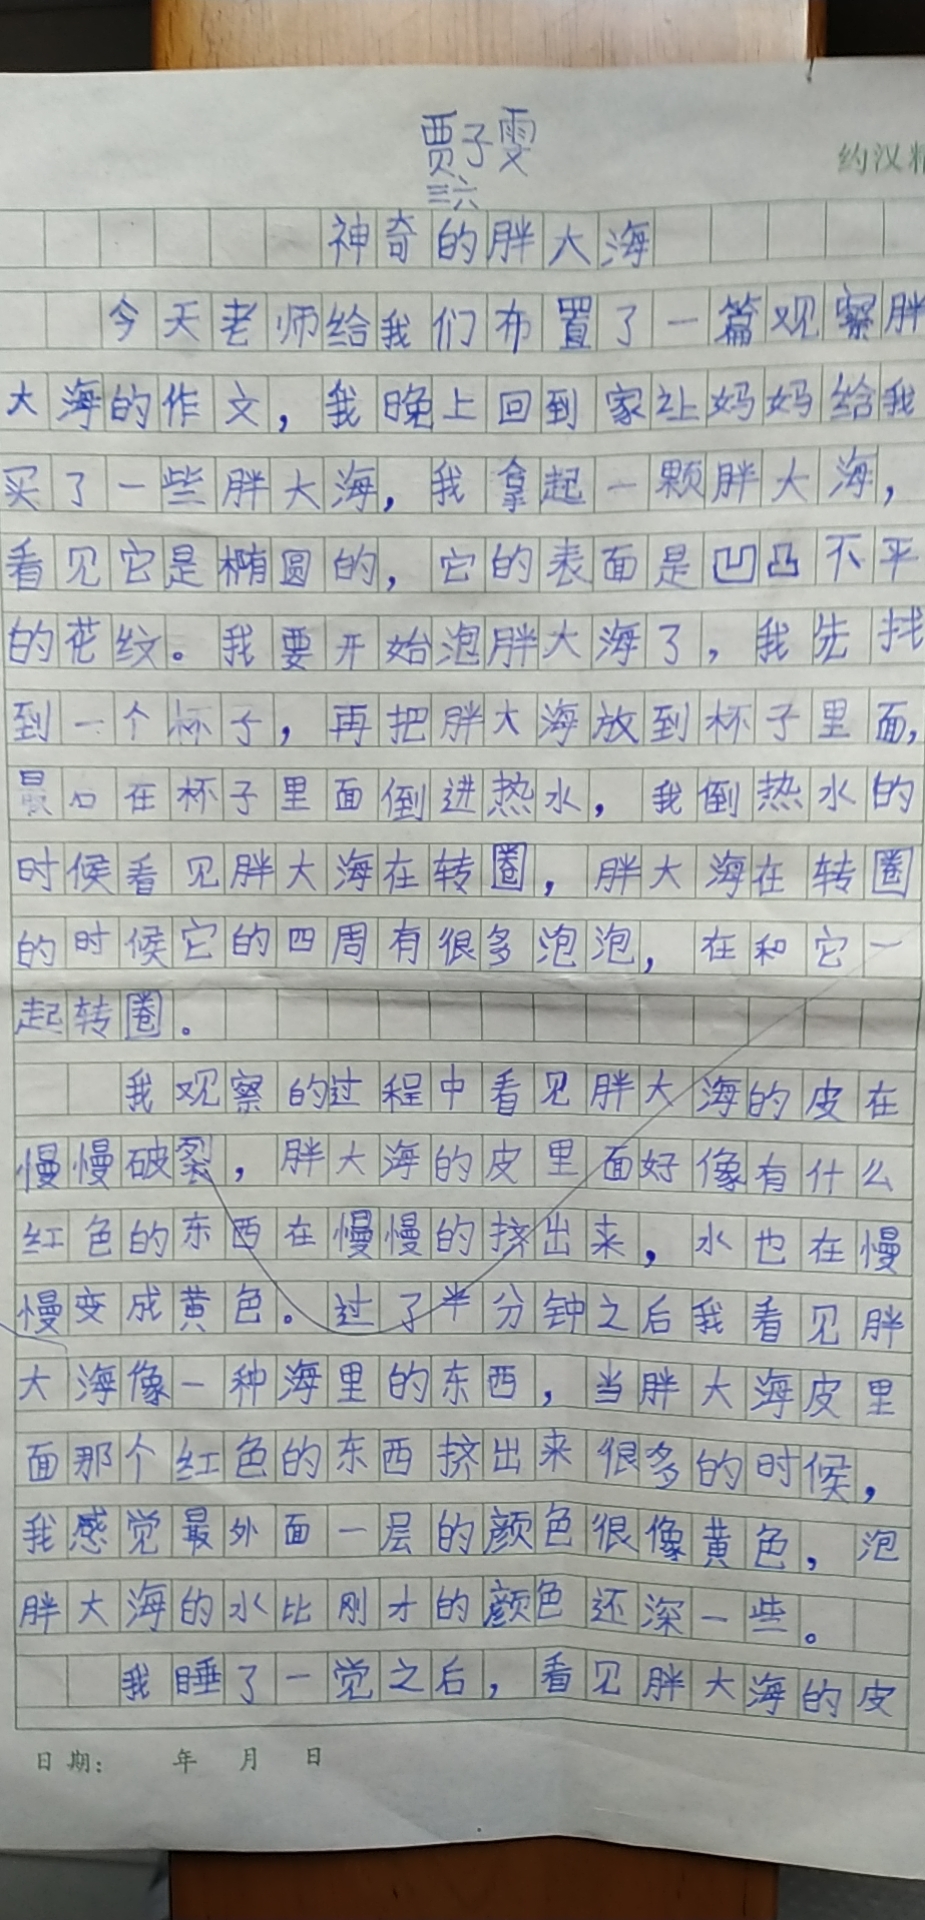 贾子雯
约汉
三六
神奇的胖大海
今天老师给我们布置了一篇观察胖
大海的作文，我晚上回到家让妈妈给我
买了一些胖大海，我拿起一颗胖大海，
看见它是椭圆的，它的表面是凹凸不平
的花纹。我要开始泡胖大海了，我先找
到一个杯子，再把胖大海放到杯子里面，
最后在杯子里面倒进热水，我倒热水的
时候看见胖大海在转圈，胖大海在转圈
的时候它的四周有很多泡泡，在和它一
起转圈。
我观察的过程中看见胖大海的皮在
慢慢破裂，胖大海的皮里面好像有什么
红色的东西在慢慢的挤出来，水也在慢
慢变成黄色。过了半分钟之后我看见胖
大海像一种海里的东西，当胖大海皮里
面那个红色的东西挤出来很多的时候，
我感觉最外面一层的颜色很像黄色，泡
胖大海的水比刚才的颜色还深一些。
我睡了一觉之后，看见胖大海的皮
日期： 年 月 日